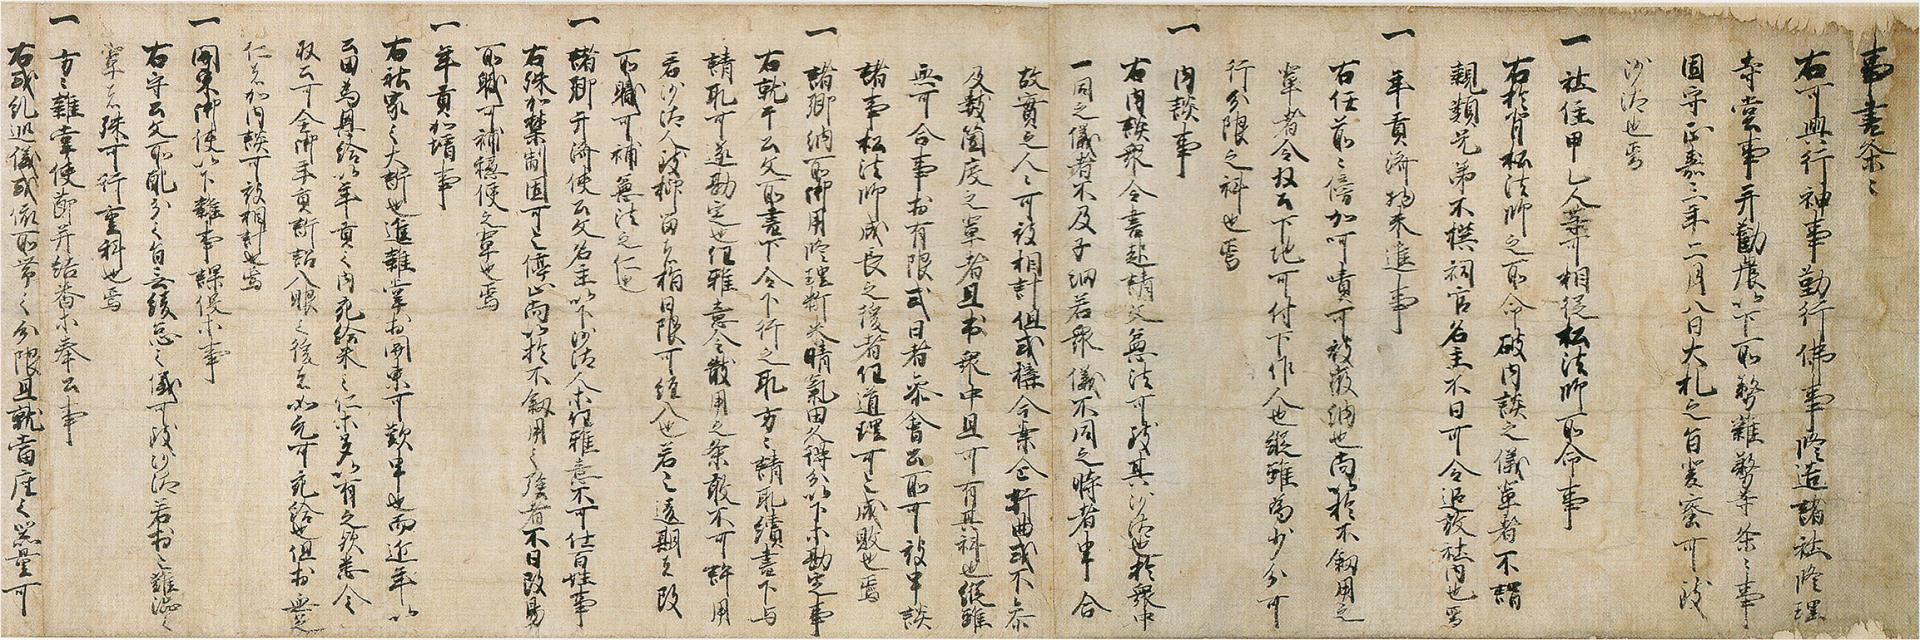 事書条々
右可興行神事勤行佛事修造諸社修理
寺堂事并勧農以下所務雑務等条々事
固守正嘉三年二月八日大札之旨炭蜜可致
沙汰也焉
一 社住甲乙人等可相従松法師所命事
右於背松法師之所命破内談之儀輩者不謂
親類兄弟不撰祠官名主不日可令追放社内也焉
一 年貢済物未進事
右任前々傍加呵嘖可被徴納也尚以於不叙用之
輩者令収公下地可付下作人也縦雖為少分可
行分限之科也焉
一 内談事
右内談衆令書起請文無法可致其沙汰也於衆中
一同之儀者不及子細若衆儀不同之時者申合
故実之人々可被相計但或構今案企折曲或不参
及数箇度之輩者且於衆中且可有其科也縦雖
無可合事於有限式日者参会公所可被申談
諸事松法師成長之後者任道理可之成敗也焉
一 諸郷納所御用修理新米晴氣田久得分以下等勘定事
右就平公文所書下令下行之取方々請取続書下与
請取可遂勘定也任雅意令散用之条敢不可許用
若沙汰人致抑留者指日限可紐入也若之遠期者改
所職可補無法之仁也
一 諸郷弁済使公文名主以下沙汰人等任雅意不可仕百姓事
右殊加禁制固可之停止尚以於不叙用之族者不日改易
所職可補穏便之輩也焉
一 年貢加増事
右社家之大訴也進雑掌於関東可歎申也而近年以
公田為具給以年貢之内充給来之仁等多以有之歟悉令
収公可全御年貢訴訟入眼之後者如元可充給也但於無足
仁者加内談可被相計也焉
一 関東御使以下雑事課役等事
右守公文所配分之旨之緩怠之儀可致沙汰若於之難渋之
輩者殊可行重科也焉
一 方々雑掌使節并結番等奉公事
右或糺巡儀或依所帯之分限且就當座之器量可